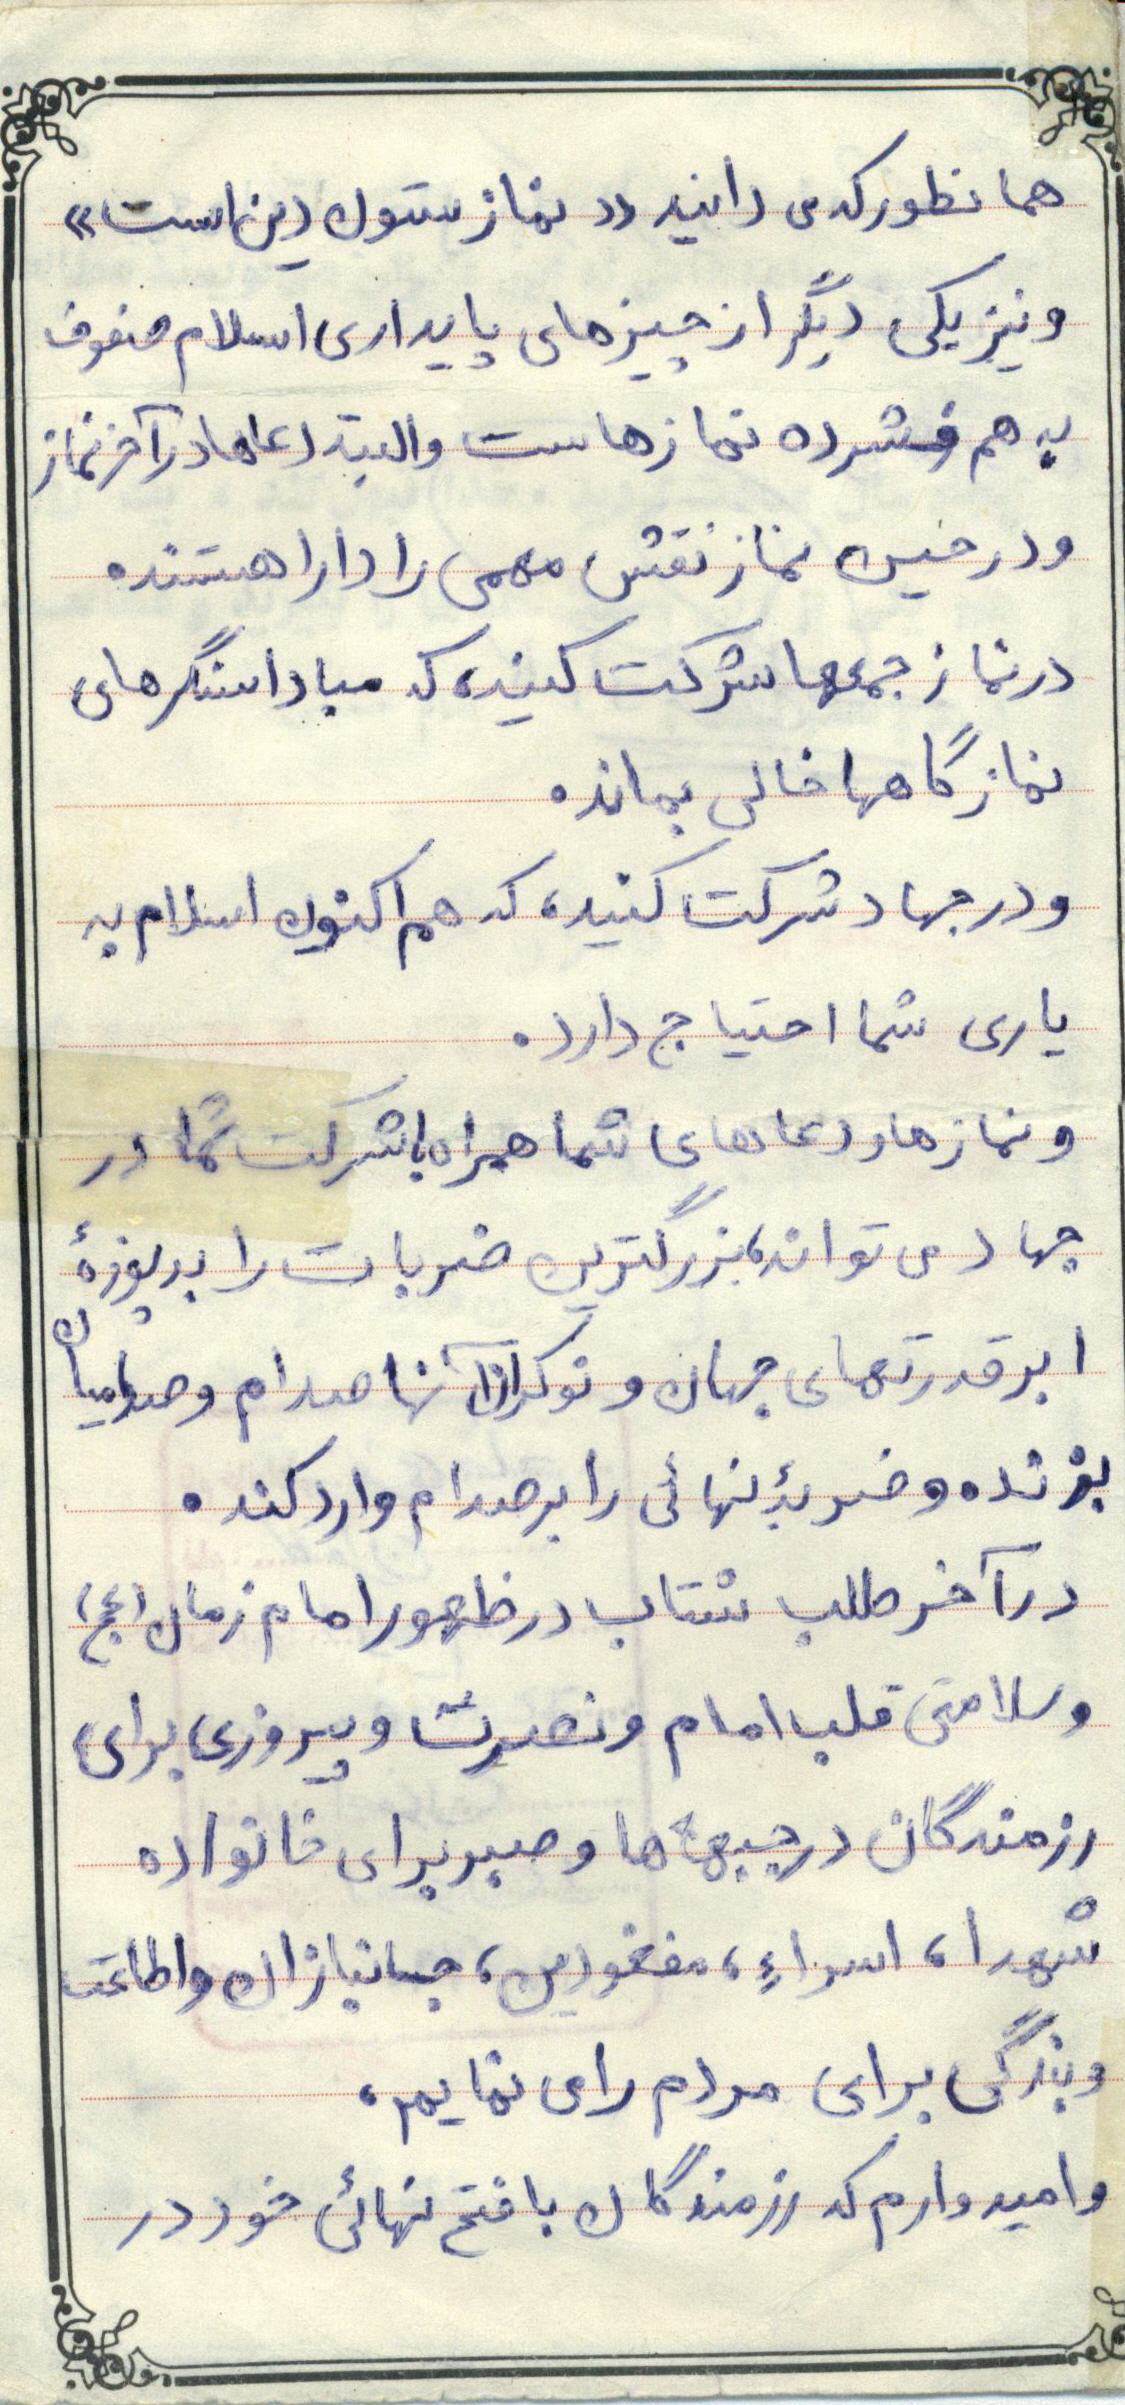 همانطور که می دانید «نماز ستون دین است»
و نیز یکی دیگر از چیزهای پایداری اسلام صفوف
به هم فشرده نمازهاست و البته دعاها در آخر نماز
و در حین نماز نقش مهمی را دارا هستند.
در نماز جمعه‌ها شرکت کنید، که مبادا سنگرهای
نمازگاهها خالی بماند.
و در جهاد شرکت کنید، که هم اکنون اسلام به
یاری شما احتیاج دارد.
و نمازها و دعاهای شما همراه با شرکت شما در
جهاد می تواند، بزرگترین ضربات را بر پوزهٔ
ابرقدرتهای جهان و نوکران آنها صدام و صدامیان
بزند. و ضربهٔ نهائی را بر صدام وارد کند.
در آخر طلب شتاب در ظهور امام زمان (عج)
و سلامتی قلب امام و نصرت و پیروزی برای
رزمندگان در جبهه‌ها و صبر برای خانواده
شهداء، اسراء، مفقودین، جانبازان و اطاعت
و بندگی برای مردم را می نمایم،
و امیدوارم که رزمندگان با فتح نهائی خود در